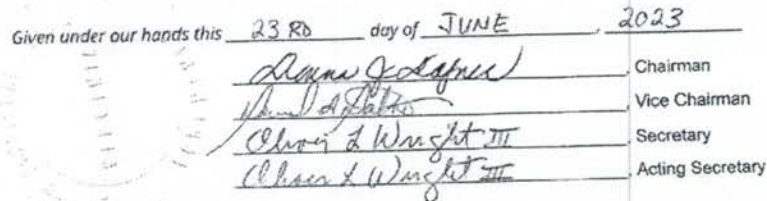 Given under our hands this 23 RD day of JUNE, 2023
Chairman
Vice Chairman
Oliver L Wright III Secretary
Oliver L Wright III Acting Secretary